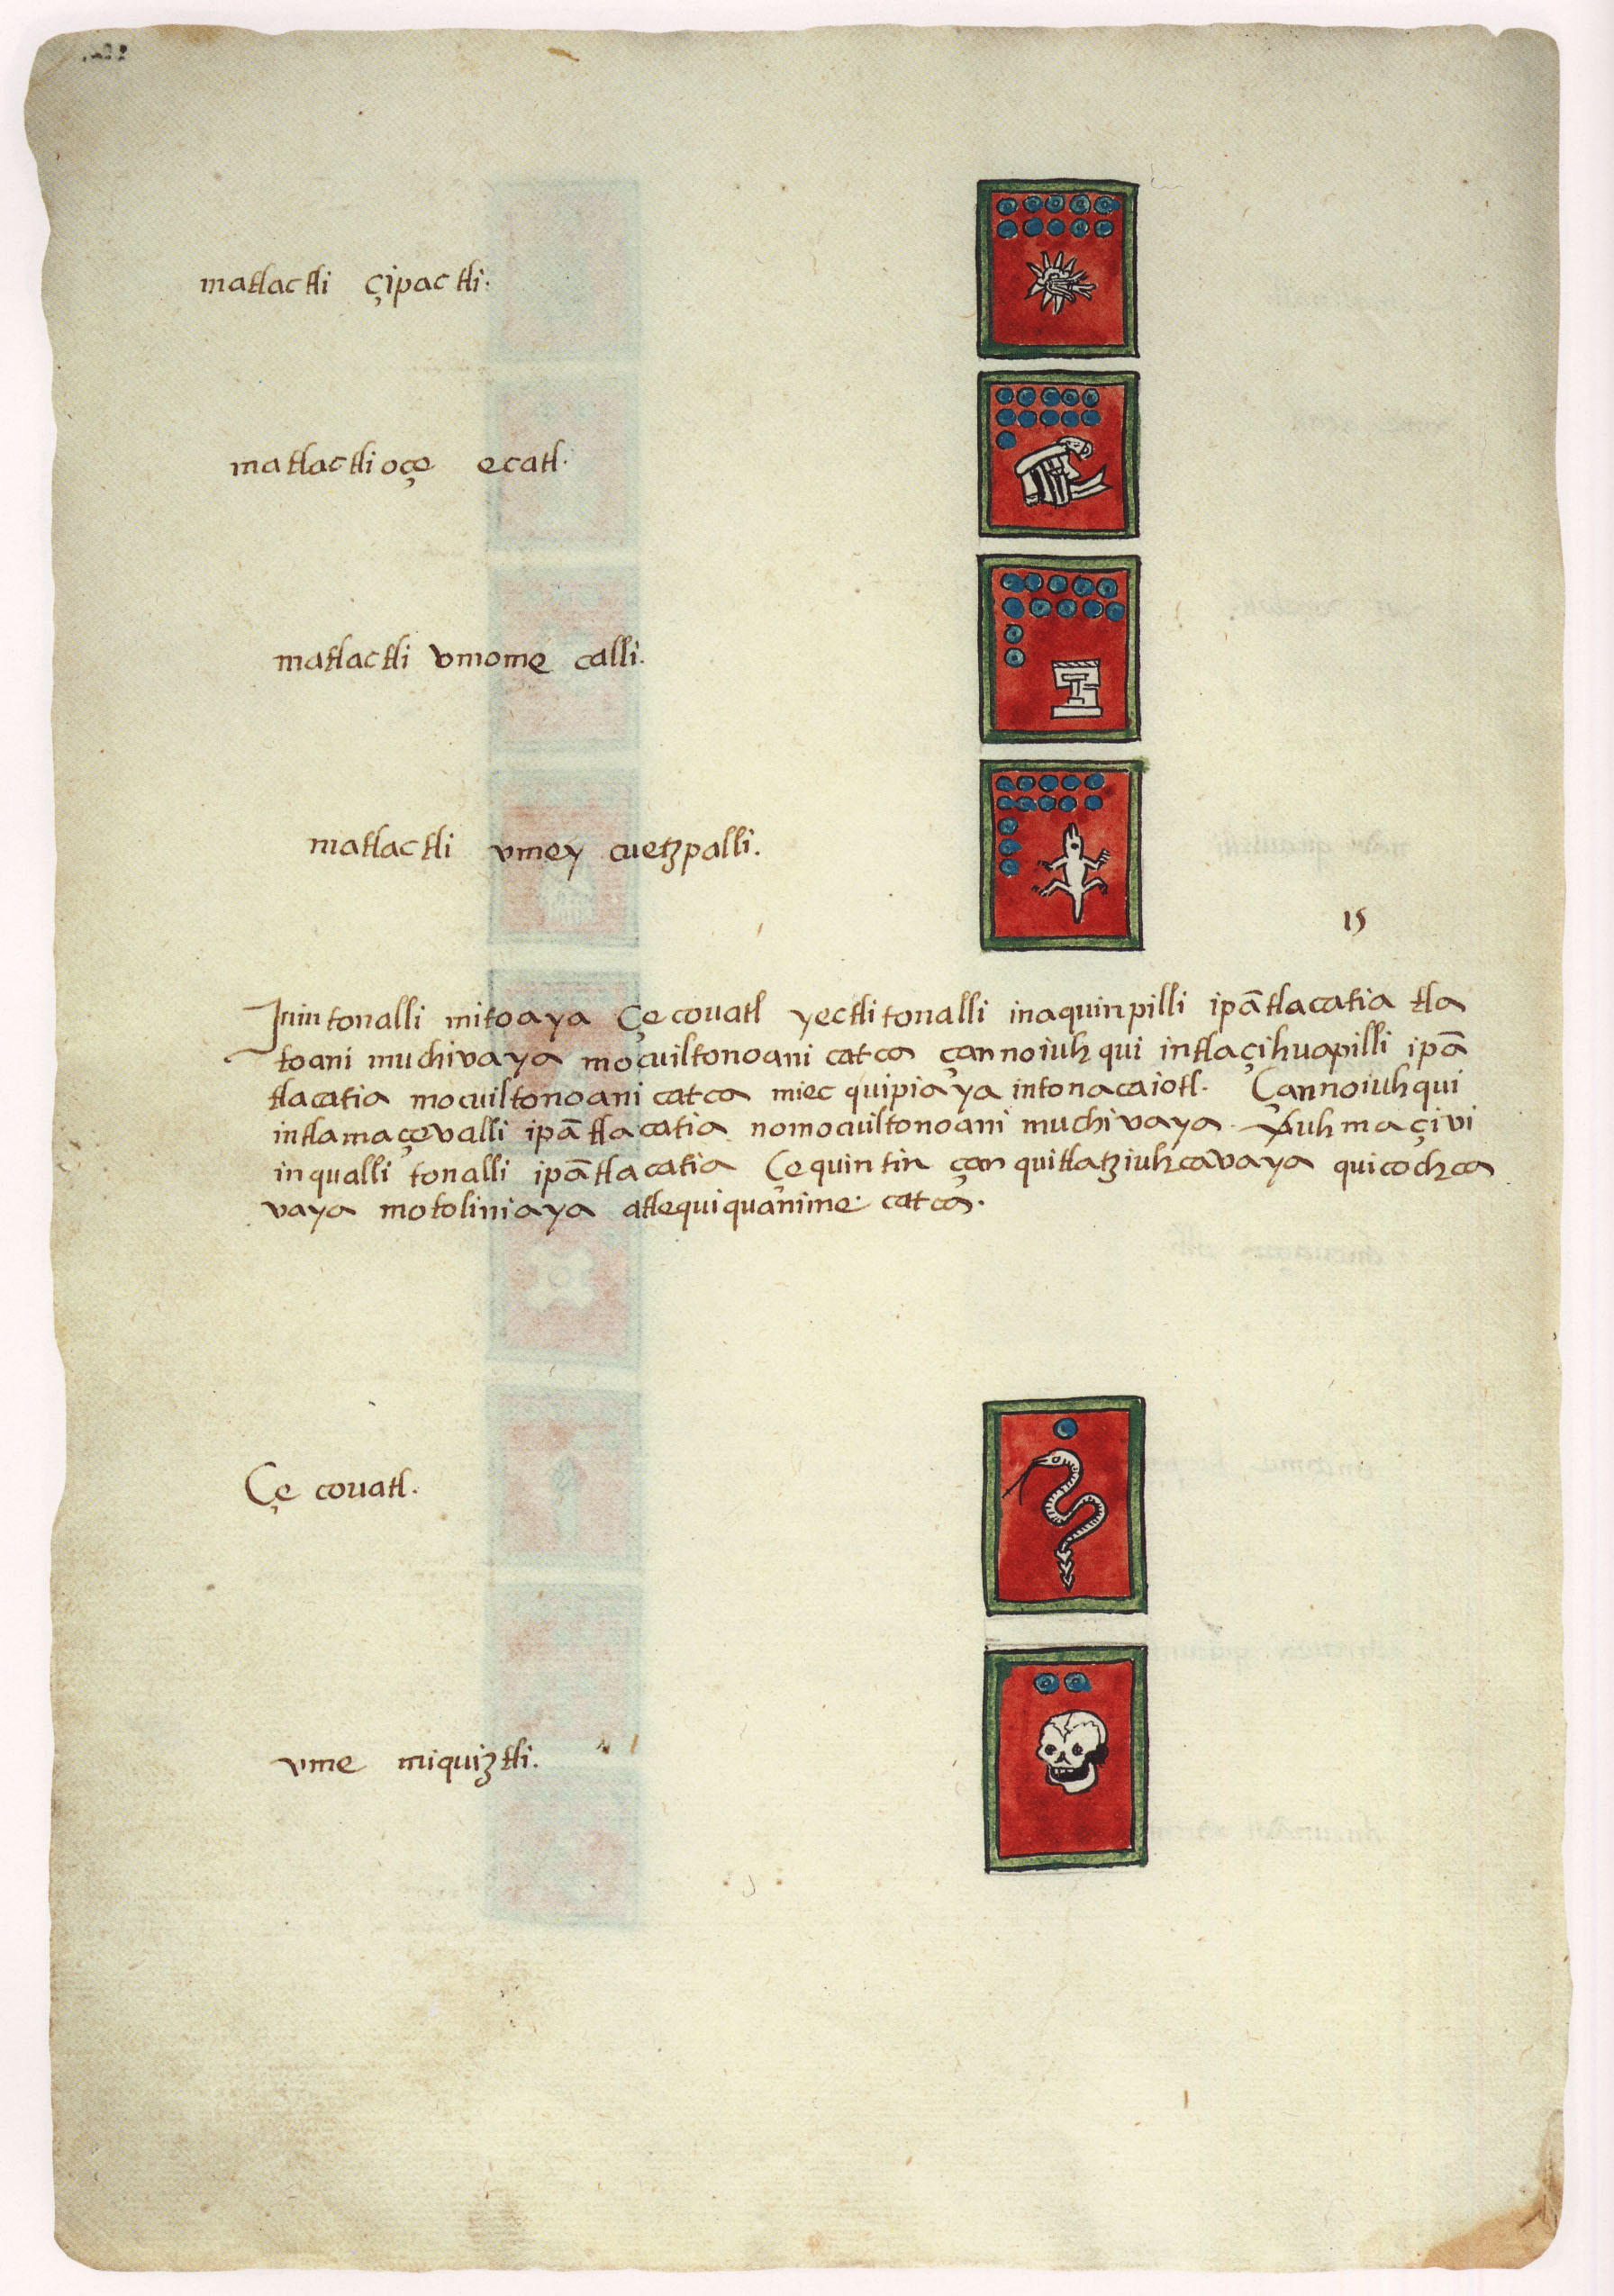 matlactli çipactli.
matlactlioçe ecatl.
matlactli vmome calli.
matlactli vmey cuetzpalli.
15
Inin tonalli mitoaya Çe couatl yectli tonalli inaquin pilli ipā tlacatia tla
toani muchivaya mocuiltonoani catca çan noiuh qui intlaçihuapilli ipā
tlacatia mocuiltonoani catca miec quipiaya intonacaiotl. Çan noiuh qui
intlamaçevalli ipā tlacatia nomocuiltonoani muchivaya. Auh maçivi
inqualli tonalli ipā tlacatia Çequintin çan quitlatziuhcavaya quicochca
vaya motoliniaya atlequiquanime catca.
Çe couatl.
vme miquiztli.